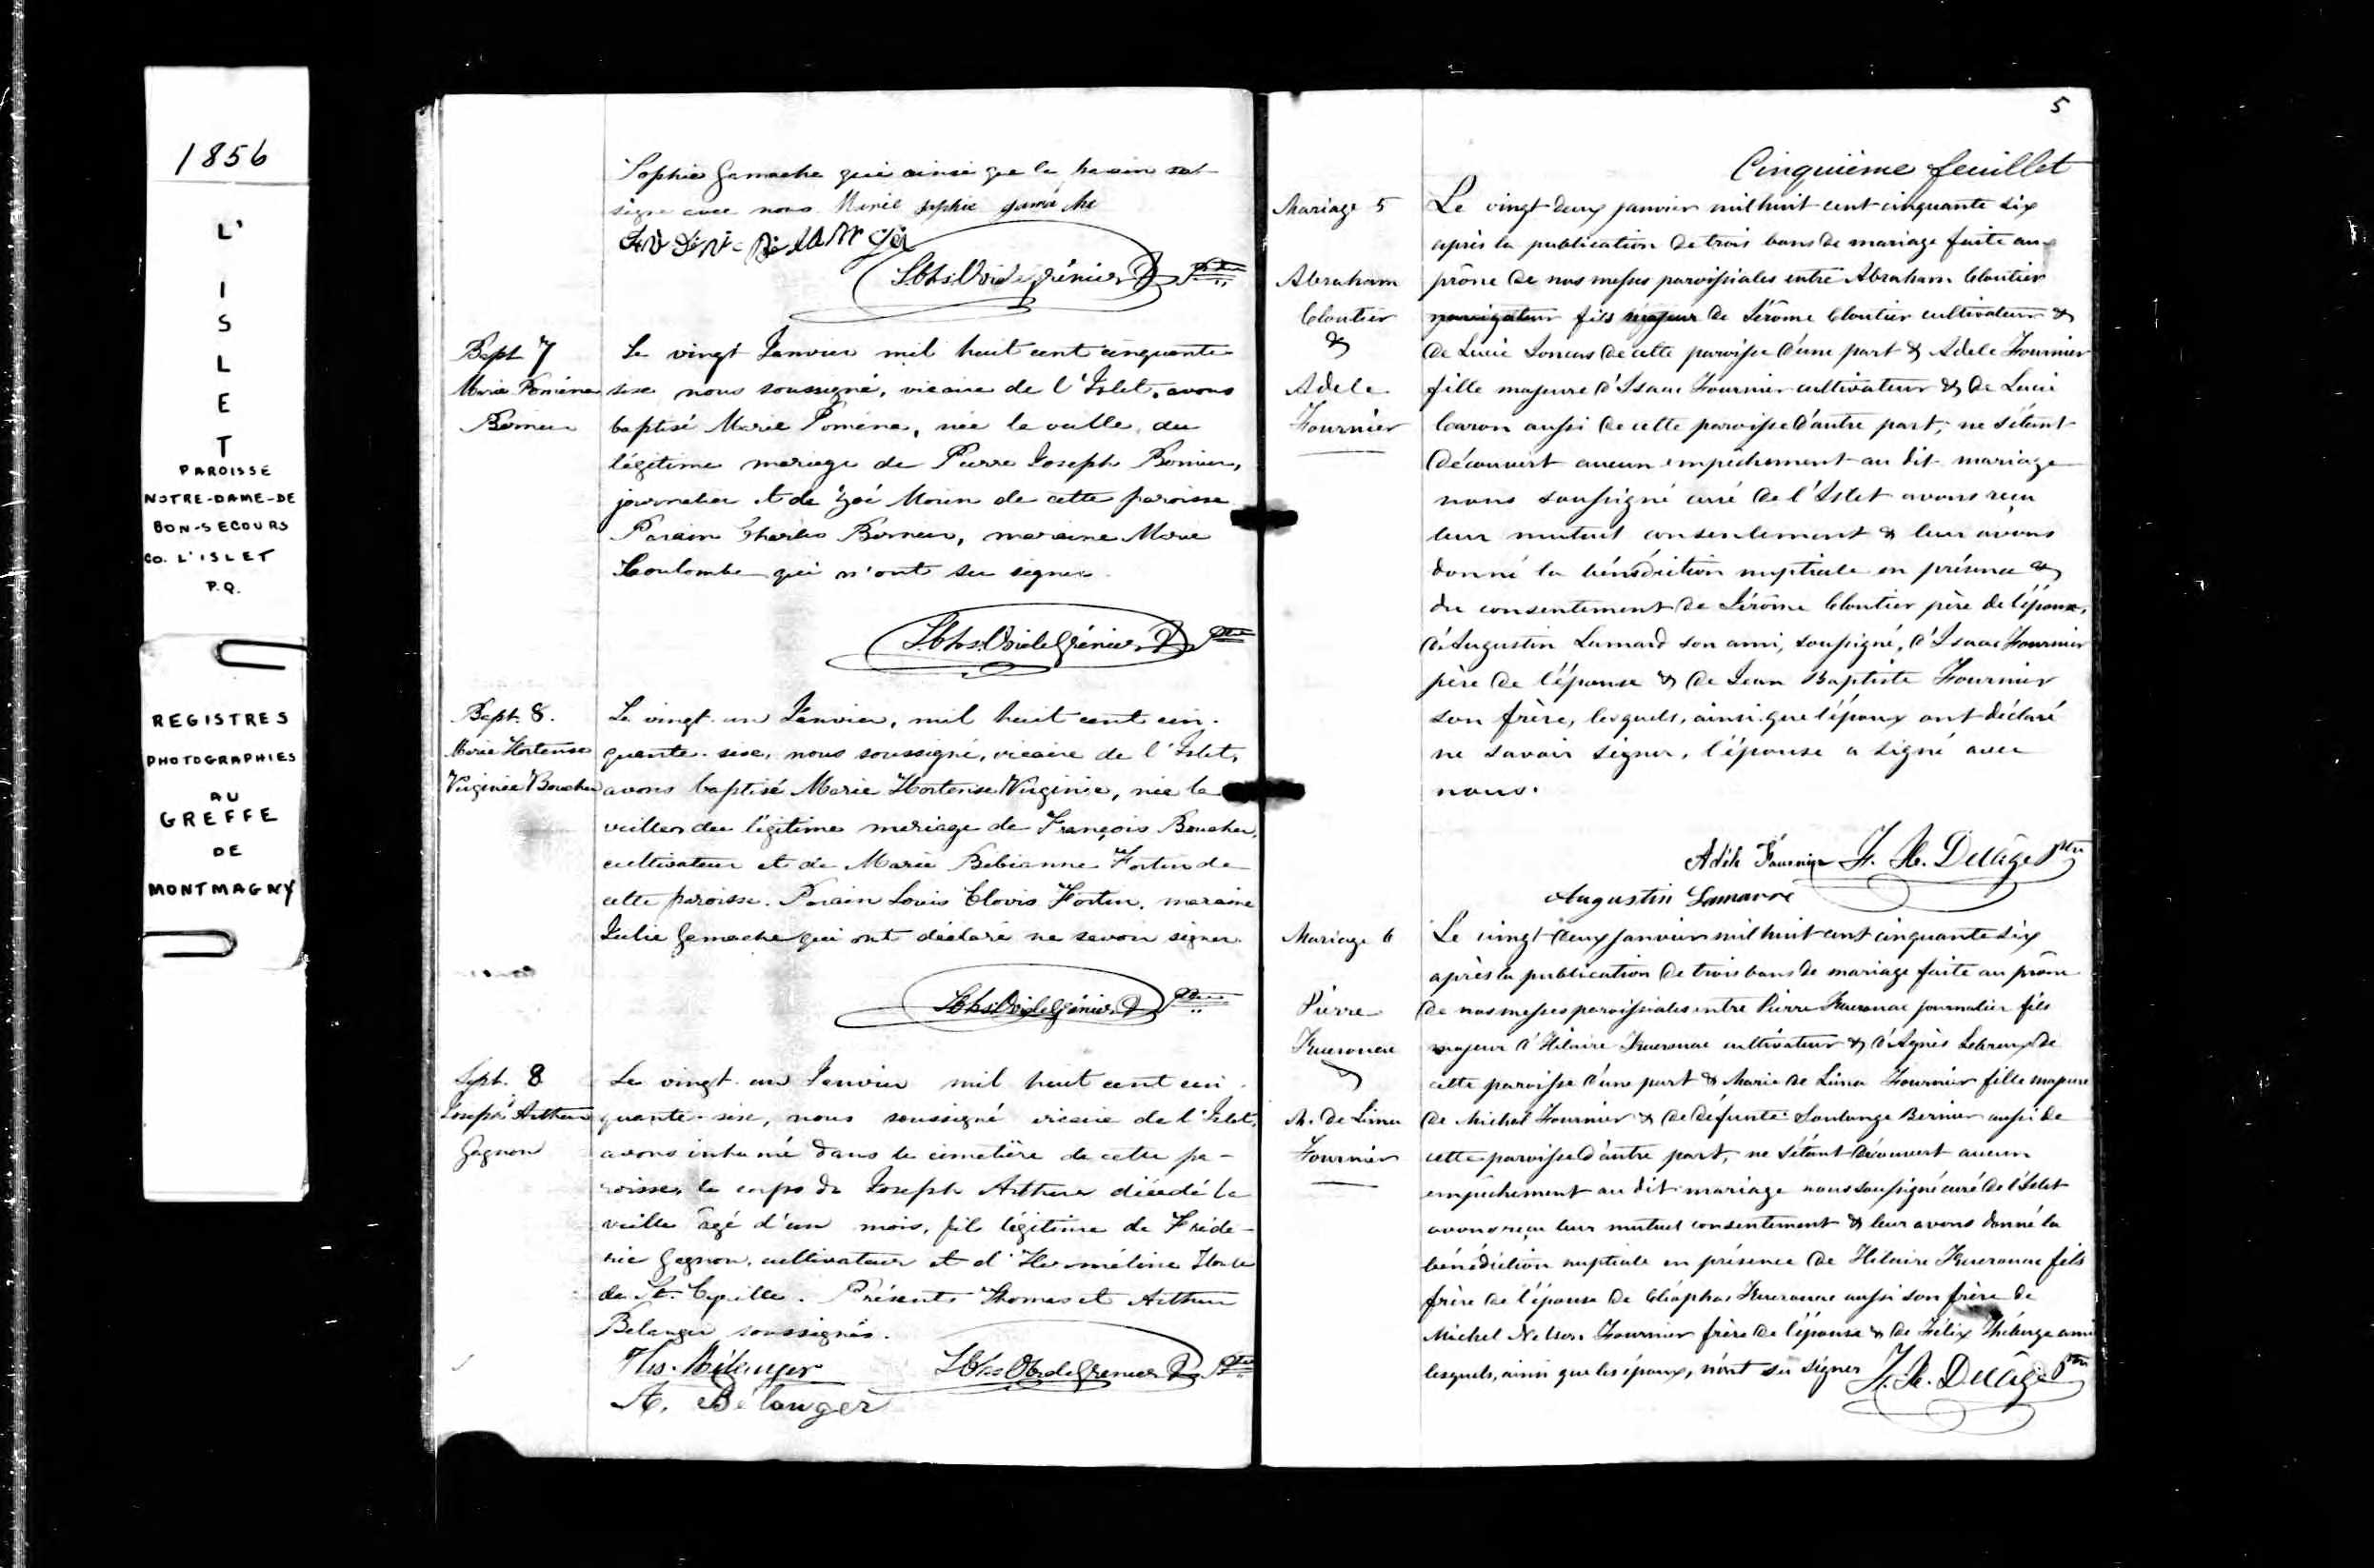 1856
L'
I
S
L
E
T
PAROISSE
NOTRE-DAME-DE
BON-SECOURS
CO. L'ISLET
P.Q.
REGISTRES
PHOTOGRAPHIES
AU
GREFFE
DE
MONTMAGNY
Sophie Gamache qui ainsi que le
signé avec nous. Marie Sophie Gamache
Bapt. 7
Marie Pomène
Bernier
Le vingt Janvier mil huit cent cinquante
sixe nous soussigné, vicaire de l'Islet, avons
baptisé Marie Pomène, née la veille, du
légitime mariage de Pierre Joseph Bernier,
journalier et de Zoé Morin de cette paroisse.
Parain Charles Bernier, maraine Marie
Coulombe qui n'ont su signer.
Bapt. 8.
Marie Hortense
Virginie Boucher
Le vingt-un Janvier, mil huit cent cin-
quante-sixe, nous soussigné, vicaire de l'Islet,
avons baptisé Marie Hortense Virginie, née la
veille, du légitime mariage de François Boucher,
cultivateur et de Marie Bibianne Fortin de
cette paroisse. Parain Louis Clovis Fortin, maraine
Julie Gamache qui ont déclaré ne savoir signer.
Sept. 8
Joseph Arthur
Gagnon
Le vingt-un Janvier mil huit cent cin-
quante-sixe, nous soussigné vicaire de l'Islet,
avons inhumé dans le cimetière de cette pa-
roisse, le corps de Joseph Arthur décédé la
veille âgé d'un mois, fils légitime de Fréde-
ric Gagnon, cultivateur et d'Herméline
de St. Cyrille. Présents Thomas et Arthur
Belanger soussignés.
Ths. Bélanger
A. Bélanger
5
Cinquième feuillet
Mariage 5
Abraham
Cloutier
&
Adele
Fournier
Le vingt deux janvier mil huit cent cinquante six
après la publication de trois bans de mariage faite au
prône de nos messes paroissiales entre Abraham Cloutier
navigateur fils majeur de Jérôme Cloutier cultivateur &
de Lucie Loncas de cette paroisse d'une part & Adele Fournier
fille majeure d'Isaac Fournier cultivateur & de Lucie
Caron aussi de cette paroisse d'autre part; ne s'étant
découvert aucun empêchement au dit mariage
nous soussigné curé de l'Islet avons reçu
leur mutuel consentement & leur avons
donné la bénédiction nuptiale en présence &
du consentement de Jérôme Cloutier père de l'époux,
d'Augustin Lamard son ami, soussigné, d'Isaac Fournier
père de l'épouse & de Jean Baptiste Fournier
son frère, lesquels, ainsi que l'époux ont déclaré
ne savoir signer, l'épouse a signé avec
nous.
Adèle Fournier F. H. Delâge Ptre
Augustin Lamarre
Mariage 6
Pierre
Kuerouac
&
M. de Lima
Fournier
Le vingt deux janvier mil huit cent cinquante six
après la publication de trois bans de mariage faite au prône
de nos messes paroissiales entre Pierre Kuerouac journalier fils
majeur d'Hilaire Kuerouac cultivateur & d'Agnès Lebreux de
cette paroisse d'une part & Marie de Lima Fournier fille majeure
de Michel Fournier & de défunte Soulange Bernier aussi de
cette paroisse d'autre part, ne s'étant découvert aucun
empêchement au dit mariage nous soussigné curé de l'Islet
avons reçu leur mutuel consentement & leur avons donné la
bénédiction nuptiale en présence de Hilaire Kuerouac fils
frère de l'époux de Cléophas Kuerouac aussi son frère de
Michel Nelson Fournier frère de l'épouse & de Félix Théberge ami
lesquels, ainsi que les époux, n'ont su signer F. H. Delâge Ptre